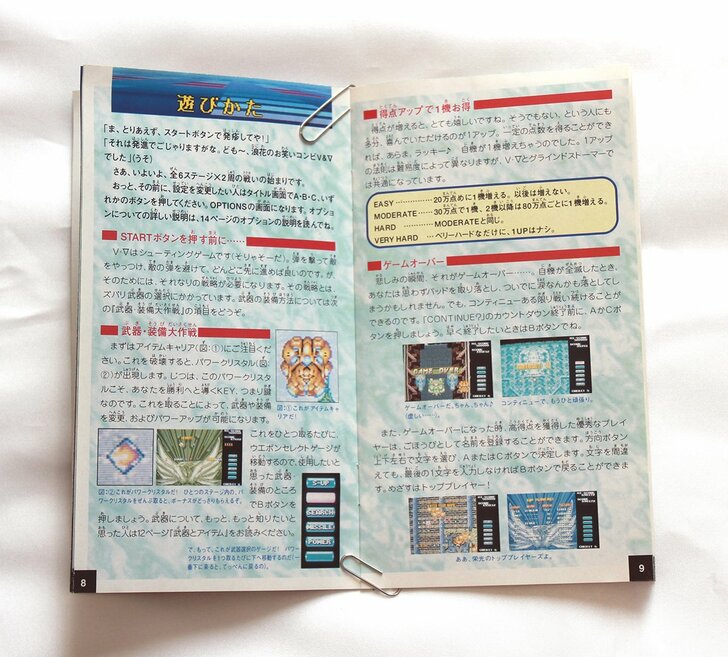 遊びかた
「ま、とりあえず、スタートボタンで発進してや！」
「それは発進でごじゃりますがな。ども〜、浪花のお笑いコンビV&V
でした」(うそ)
さあ、いよいよ、全6ステージ×2周の戦いの始まりです。
おっと、その前に、設定を変更したい人はタイトル画面でA・B・C、いず
れかのボタンを押してください。OPTIONSの画面になります。オプショ
ンについての詳しい説明は、14ページのオプションの説明を読んでね。
STARTボタンを押す前に……
V・Vはシューティングゲームです(そりゃそーだ)。弾を撃って敵
をやっつけ、敵の弾を避けて、どんどこ先に進めば良いのです。が、
そのためには、それなりの戦略が必要になります。その戦略とは、
ズバリ武器の選択にかかっています。武器の装備方法については次
の『武器・装備大作戦』の項をどうぞ。
武器・装備大作戦
まずはアイテムキャリア(図:①)にご注目くだ
さい。これを破壊すると、パワークリスタル(図:
②)が出現します。じつは、このパワークリスタ
ルこそ、あなたを勝利へと導くKEY、つまり鍵
なのです。これを取ることによって、武器や装備
を変更、およびパワーアップが可能になります。
図:①これがアイテムキャ
リアだ!
これをひとつ取るたびに、
ウエポンセレクトゲージが
移動するので、使用したいと
思った武器、
装備のところ
でBボタンを
図:②これがパワークリスタルだ! ひとつのステージ内の、パ
ワークリスタルをぜんぶ取ると、ボーナスがどっきりもらえるぞ。
押しましょう。武器について、もっと、もっと知りたいと
思った人は12ページ『武器とアイテム』をお読みください。
S-UP
SEARCH
MISSILE
POWER
で、もって、これが武器選択のゲージだ! パワー
クリスタルを1つ取るたびに下へ移動するのだ!(一
番下に来ると、てっぺんに戻るの)。
8
得点アップで1機お得
得点が増えると、とても嬉しいですね。そうでもない、という人にも
多分、喜んでいただけるのが1アップ。一定の点数を得ることができ
れば、あらま、ラッキー♪ 自機が1機増えちゃうのです。1アップ
の法則は難易度によって異なりますが、V・VとグラインドストーマーVでは共通になっています。
EASY……………20万点めに1機増える。以後は増えない。
MODERATE……30万点で1機、2機以降は80万点ごとに1機増える。
HARD ……………MODERATEと同じ。
VERY HARD …ベリーハードなだけに、1UPはナシ。
ゲームオーバー
悲しみの瞬間、それがゲームオーバー……。自機が全滅したとき、
あなたは思わずパッドを取り落とし、ついでに涙なんかも落としてし
まうかもしれません。でも、コンティニューある限り戦い続けることが
できるのです。「CONTINUE?」のカウントダウン終了前に、AかCボ
タンを押しましょう。早く終了したいときはBボタンでね。
GAME OVER
ゲームオーバーだ、ちゃん、ちゃん♪
(悲しい……)。
コンティニューで、もうひと頑張り。
また、ゲームオーバーになった時、高得点を獲得した優秀なプレイ
ヤーは、ごほうびとして名前を登録することができます。方向ボタン
上下左右で文字を選び、AまたはCボタンで決定します。文字を間違
えても、最後の1文字を入力しなければBボタンで戻ることができま
す。めざすはトッププレイヤー!
ああ、栄光のトッププレイヤーズよ。
9